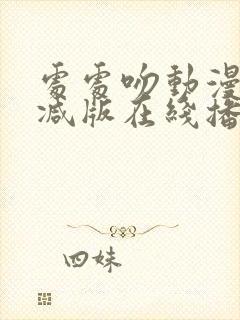 處處吻動漫
減版在綫播
四妹